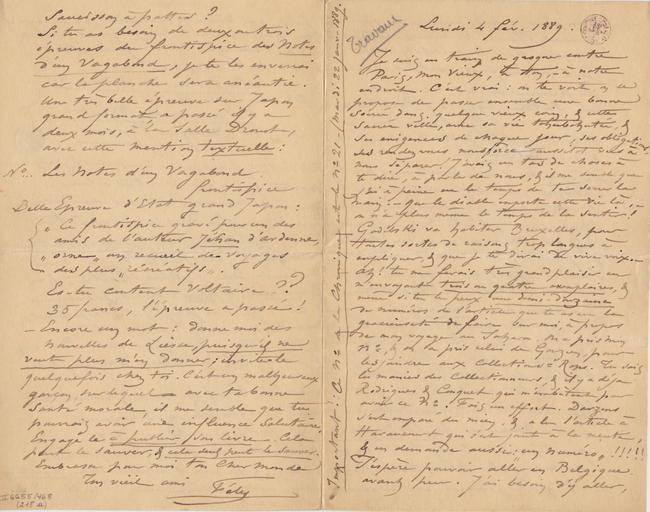 Lundi 4 fév. 1889.
Travaux
Je suis en train de grogner contre
Paris, mon vieux, & toi, à notre
endroit. C'est vrai: on te voit, on se
propose de passer ensemble une bonne
soirée dans quelque vieux coin, & cette
sacrée ville, avec sa vie &
ses exigences de chaque jour, ses obligations,
ses rendez vous force aussitôt à
nous séparer. J'avais un tas de choses à
te dire, à parler de nous, & il me semble que
j'ai à peine eu le temps de te serrer la
main. que le diable emporte cette vie là,
on n'a plus même le temps de la sentir!
Godebski va habiter Bruxelles, pour
toutes sortes de raisons trop longues à
expliquer, & que je te dirai de vive voix.
Ah! tu me ferais très grand plaisir en
m'envoyant trois ou quatre exemplaires, &
même si tu le peux une demi douzaine
de numéros de l'article que tu as eu la
gracieuseté de faire sur moi, à propos
de mon voyage au Sahara. On a pris mon
No, & on a pris celui de Gouzien, pour
les joindre aux collections Rops. Tu sais
les manies des Collectionneurs, & il y a déjà
Rodrigues & Conquet qui m'embêtent pour
avoir ce No. Fais un effort. Darzens
s'est emparé du mien, & a lu l'article à
Haraucourt qui s'est joint à la meute,
& en demande aussi: un numéro, !!!!!
J'espère pouvoir aller en Belgique
avant peu. J'ai besoin d'y aller,
Important: Ce No de la Chronique est le No 21 - (Mardi 22 Janv. 1889.
Saucisson à pattes?
Si tu as besoin de deux ou trois
épreuves du frontispice des Notes
d'un Vagabond, je te les enverrai
car la planche sera anéantie.
Une très belle épreuve sur Japon
grand format, a passé il y a
deux mois, à la Salle Drouot
avec cette mention textuelle:
No... Les Notes d'un Vagabond.
frontispice
Belle Epreuve d'Etat grand Japon:
"Ce frontispice gravé pour un des
amis de l'auteur Jéhan d'Ardenne,
"orne, un recueil de voyages
des plus récréatifs".
Es-tu content Voltaire??
35 francs, l'épreuve a passé!
- Encore un mot: donne moi des
nouvelles de Liesse, puisqu'il ne
veut plus m'en donner; invite le
quelquefois chez toi. C'est un malheureux
garçon, sur lequel - avec ta bonne
santé morale, il me semble que tu
pourrais avoir une influence salutaire.
Engage le à publier son livre. Cela
peut le sauver, & cela seul peut le sauver.
Embrasse pour moi ton cher monde
Ton vieil ami
Fély
II 6655/468